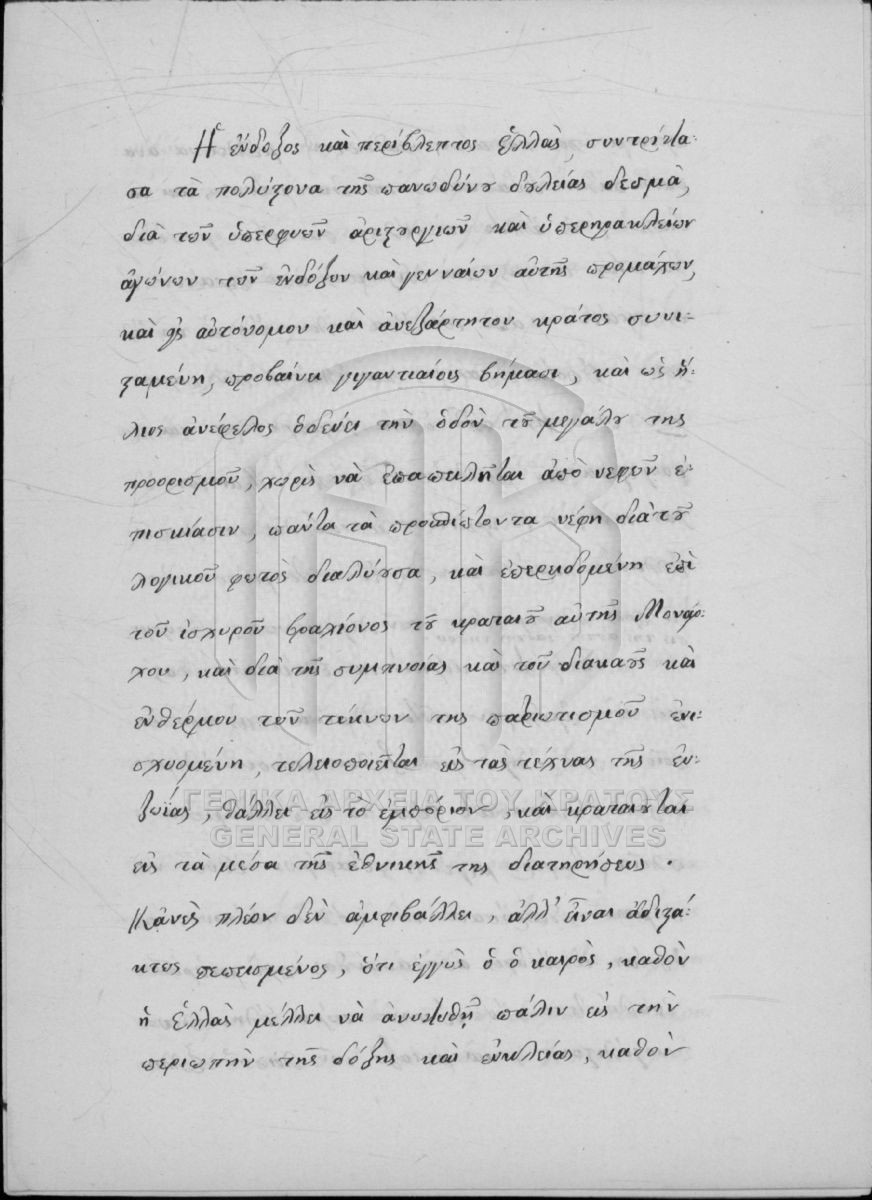 Ἡ ἔνδοξος καὶ περίβλεπτος Ἑλλὰς, συντρίψα-
σα τὰ πολύστονα τῆς πανωδύνου δουλείας δεσμὰ,
διὰ τῶν ὑπερφυῶν ἀριστουργιῶν καὶ ὑπερηρακλείων
ἀγώνων τῶν ἐνδόξων καὶ γενναίων αὐτῆς προμάχων,
καὶ εἰς αὐτόνομον καὶ ἀνεξάρτητον κράτος συνι-
σταμένη, προβαίνει γιγαντιαίοις βήμασι, καὶ ὡς ἥ-
λιος ἀνέφελλος ὁδεύει τὴν ὁδὸν τοῦ μεγάλου της
προορισμοῦ, χωρὶς νὰ ἐπαπειλῆται ἀπὸ νεφῶν ἐ-
πισκίασιν, πάντα τὰ προσπίπτοντα νέφη διὰ τοῦ
λογικοῦ φωτὸς διαλύουσα, καὶ ἐπερειδομένη ἐπὶ
τοῦ ἰσχυροῦ βραχίονος τοῦ κραταιοῦ αὐτῆς Μονάρ-
χου, καὶ διὰ τῆς συμπνοίας καὶ τοῦ διακαοῦς καὶ
ἐνθέρμου τῶν τέκνων της πατριωτισμοῦ ἐνι-
σχυομένη, τελειοποιεῖται εἰς τὰς τέχνας τῆς εὐ-
ζωΐας, θάλλει εἰς τὸ ἐμπόριον, καὶ κραταιοῦται
εἰς τὰ μέσα τῆς ἐθνικῆς της διατηρήσεως.
Κἀνεὶς πλέον δὲν ἀμφιβάλλει, ἀλλ' εἶναι ἀδιστά-
κτως πεπεισμένος, ὅτι ἐγγὺς ὁ ὁ καιρὸς, καθὸν
ἡ Ἑλλὰς μέλλει νὰ ἀνυψωθῇ πάλιν εἰς τὴν
περιωπὴν τῆς δόξης καὶ εὐκλείας, καθὸν
ΓΕΝΙΚΑ ΑΡΧΕΙΑ ΤΟΥ ΚΡΑΤΟΥΣ
GENERAL STATE ARCHIVES